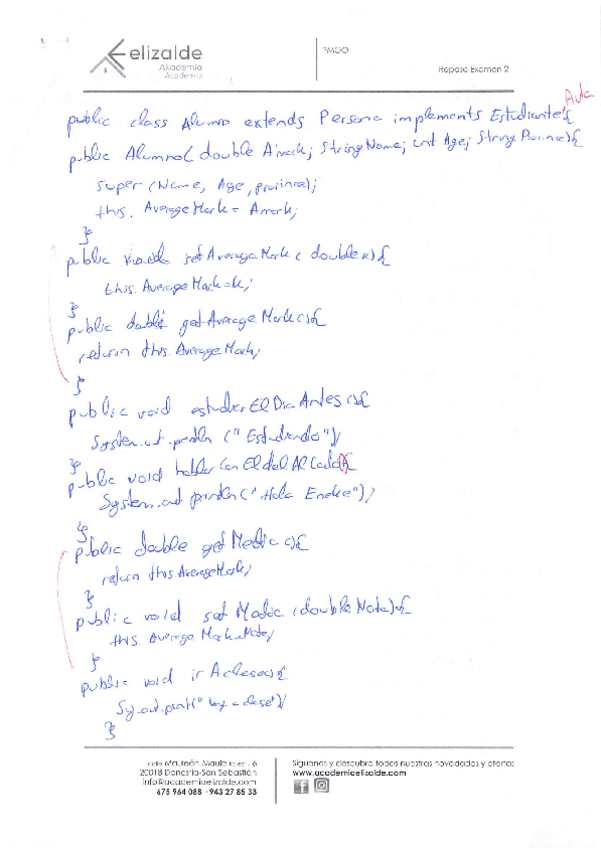 elizalde
Akademia
Academia
PMOO
Repaso Examen 2
Aula
public class Alumno extends Persona implements Estudiante{
public Alumno( double Amark; String Name; int Age; String Province){
super (Name, Age, province);
this. AverageMark = Amark;
}
public void set AverageMark ( double x){
this. AverageMark=x;
}
public double get Average Mark(){
return this. AverageMark;
}
public void estudiar El Dia Antes (){
System.out.println ("Estudiando");
}
public void hablar Con El del Al Lado(){
System.out println ("Hola Eneke");
}
public double get Media (){
return this AverageMark;
}
public void set Media (double Nota){
this. Average Mark=Nota;
}
public void ir Aclase(){
Sy.out.print("
}
20018 Donostia-San Sebastián
info@academiaelizalde.com
675 964 088 · 943 27 85 33
Síguenos y descubre todas nuestras novedades y ofertas
www.academiaelizalde.com